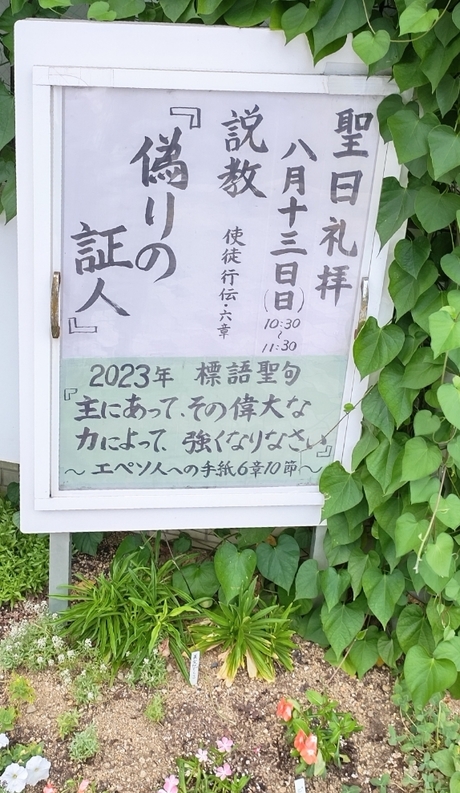 聖日礼拝
八月十三日(日)
10:30
～
11:30
説教
使徒行伝・六章
『偽りの
証人』
2023年 標語聖句
『主にあって、その偉大な
力によって、強くなりなさい』
～エペソ人への手紙6章10節～